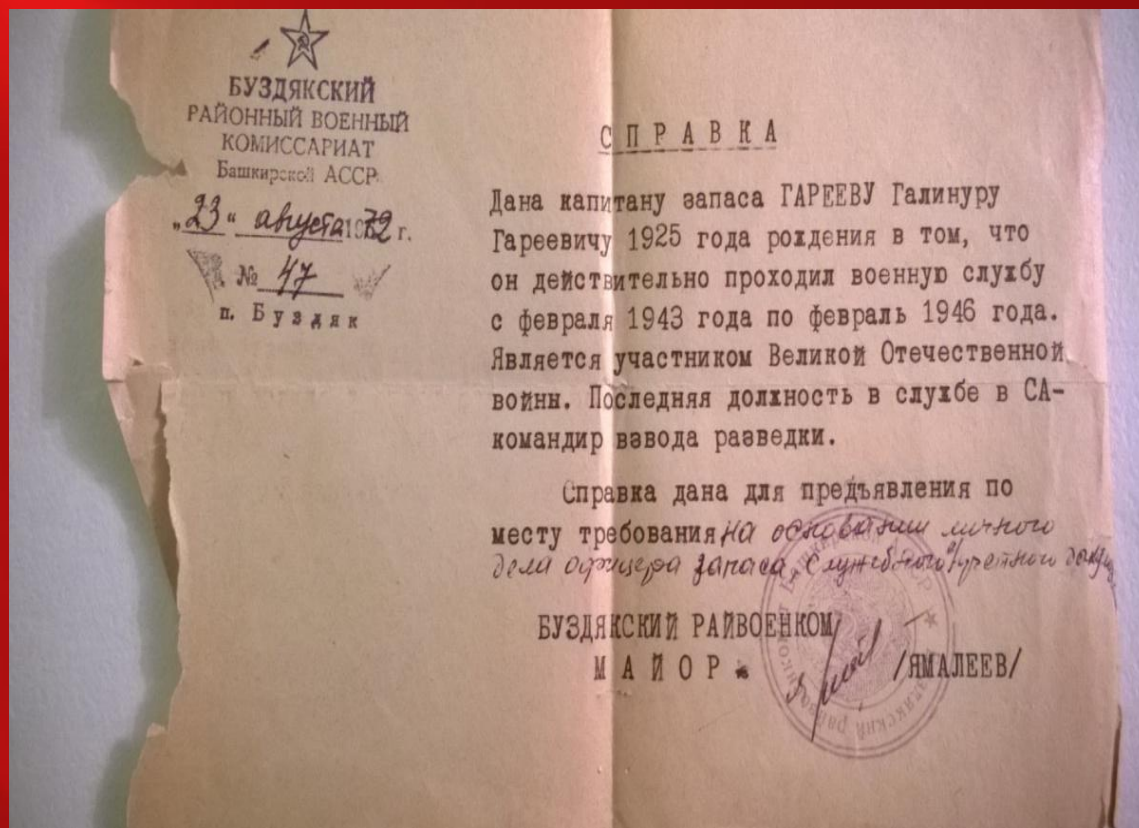 БУЗДЯКСКИЙ
РАЙОННЫЙ ВОЕННЫЙ
КОМИССАРИАТ
Башкирской АССР
"23" августа 1972 г.
№ 47
п. Буздяк
СПРАВКА
Дана капитану запаса ГАРЕЕВУ Галинуру
Гареевичу 1925 года рождения в том, что
он действительно проходил военную службу
с февраля 1943 года по февраль 1946 года.
Является участником Великой Отечественной
войны. Последняя должность в службе в СА-
командир взвода разведки.
Справка дана для предъявления по
месту требования на основании личного
дела офицера запаса служебного учетного
БУЗДЯКСКИЙ РАЙВОЕНКОМ
МАЙОР /ЯМАЛЕЕВ/